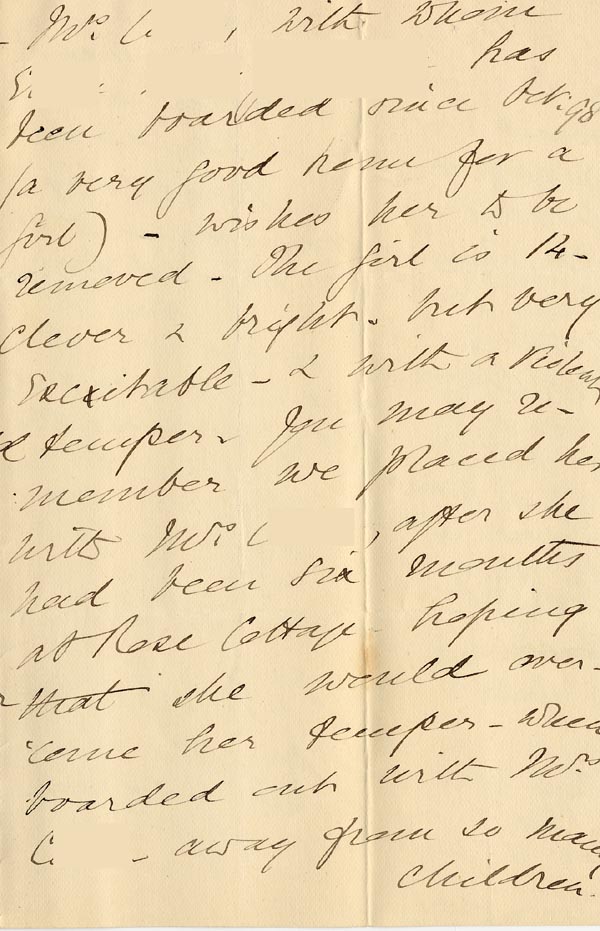 - Mrs C , with whom
E. has
been boarded since Oct. 98
(a very good home for a
girl) - wishes her to be
removed - The girl is 14 -
Clever & bright - but very
Excitable - & with a violent
temper - You may re-
member we placed her
with Mrs C , after she
had been six months
at Rose Cottage - hoping
that she would over-
come her temper - when
boarded out with Mrs
C. - away from so many
children.